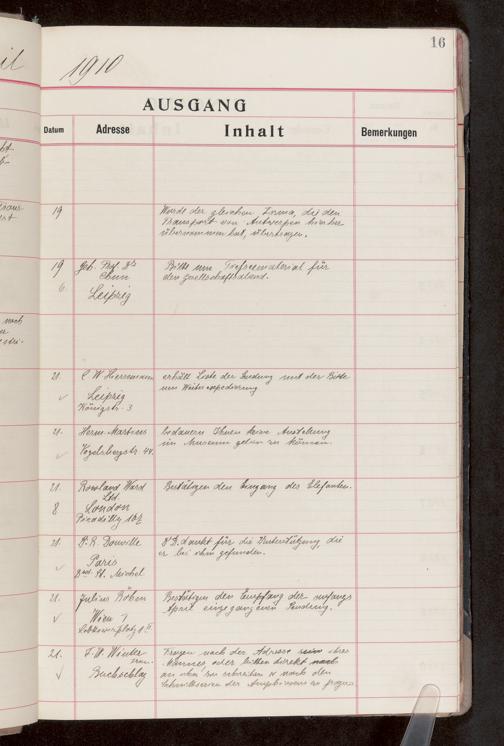 16
1910
AUSGANG
Datum Adresse Inhalt Bemerkungen
19 Wurde der gleichen Firma, die den
Transport von Antwerpen hierher
übernommen hat, übertragen.
19 Geh. Prof. Dr
Chun
Leipzig
Bitte um Tiefseematerial für
den
21. C. W. Herrmann
Leipzig
Königstr. 3
erhält Liste der Sendung mit der Bitte
um Weiterexpedierung
21. Herm. Martens
Vogelsbergstr. 44.
bedauern Ihnen keine Anstellung
im Museum geben zu können.
21. Rowland Ward
Ltd.
London
Piccadilly 167
Bestätigen den Eingang des Elefanten.
21. Donville
Paris
Bd. St. Michel
D. dankt für die Unterstützung, die
er bei ihm gefunden.
21. Julius Böhm
Wien I
Bestätigen den Empfang der anfangs
April eingegangenen Sendung.
21. F. W. Winter
Buchschlag
Fragen nach der Adresse ihres
oder bitten direkt
an ihn zu schreiben u nach den
zu fragen